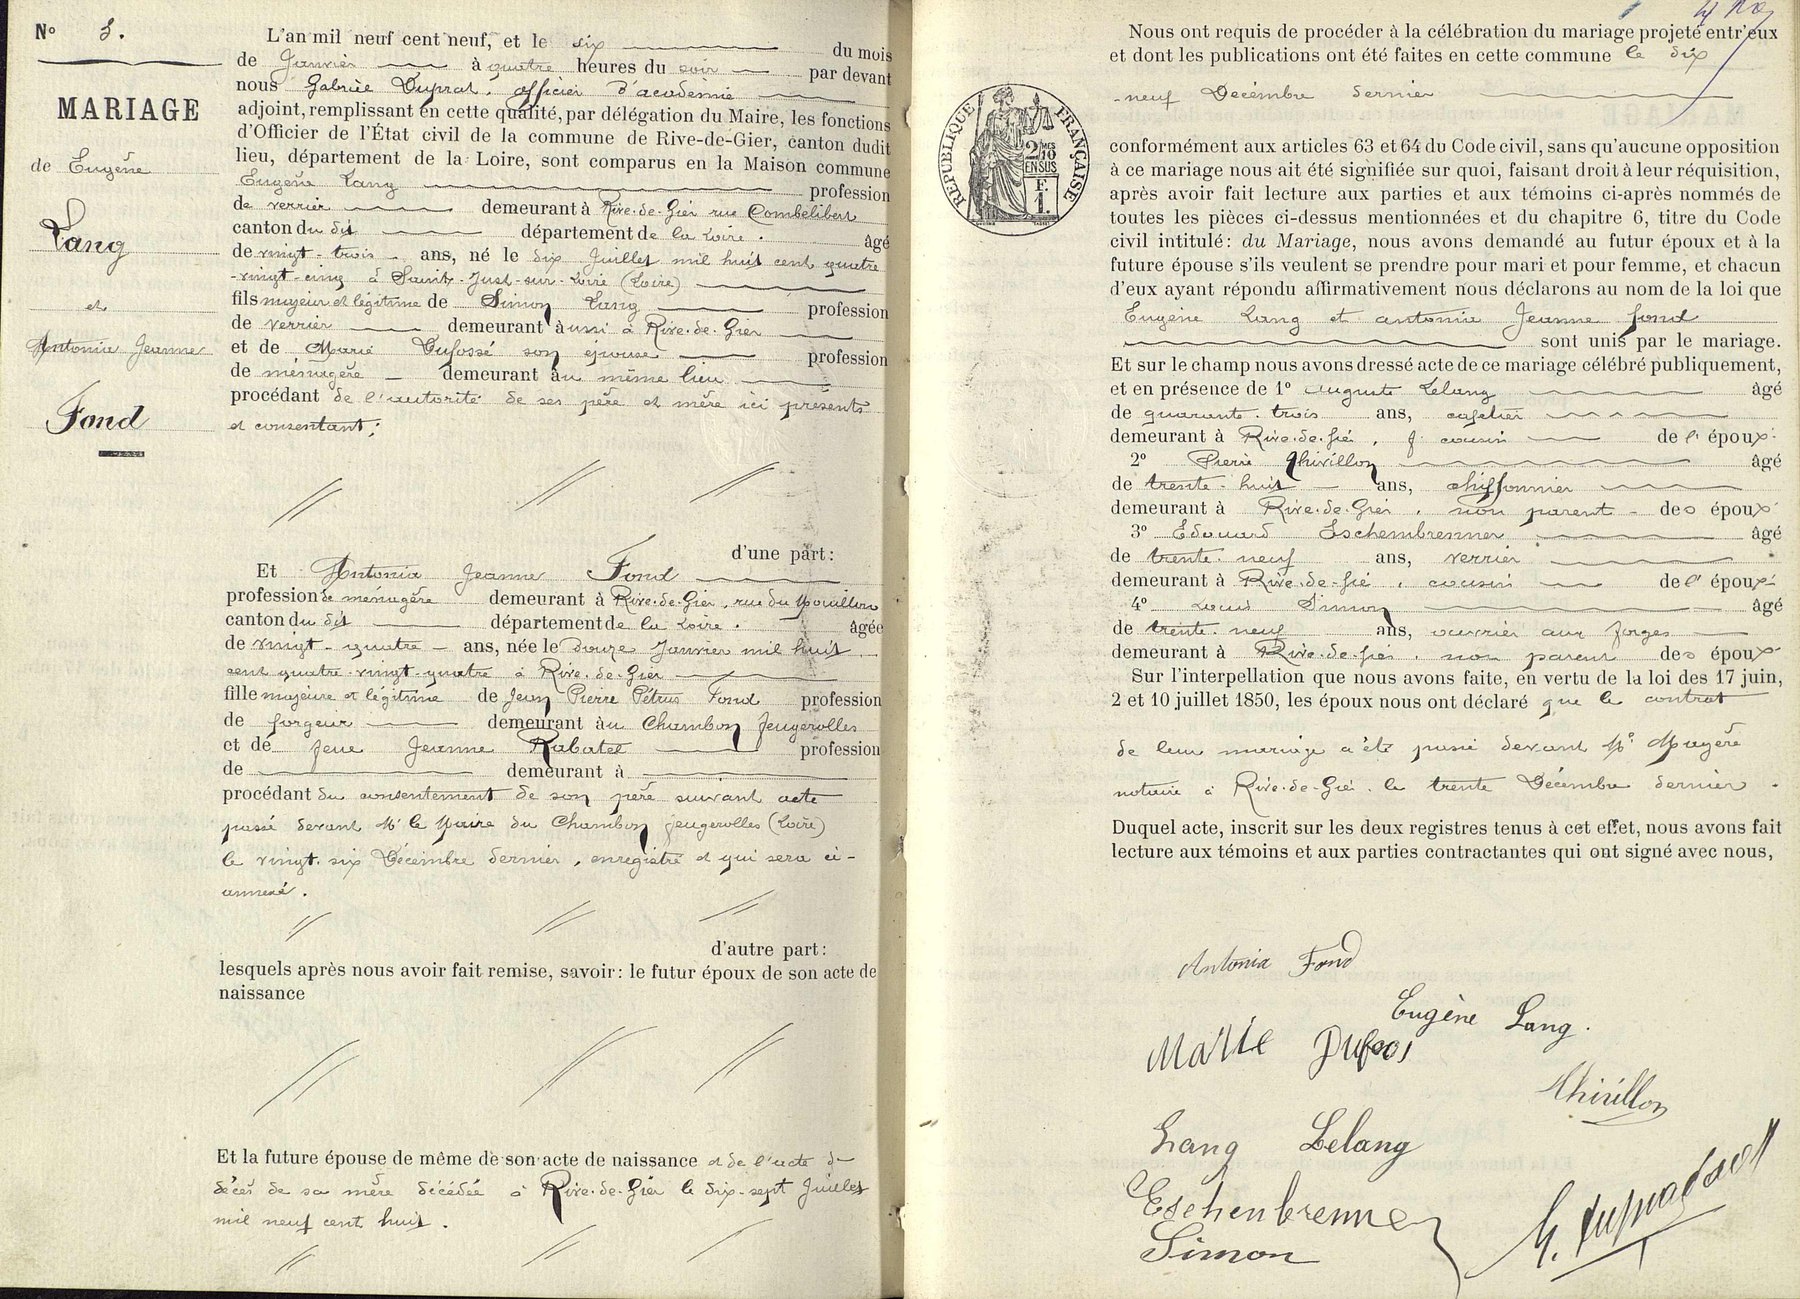 N° 3.
MARIAGE
de Eugène
Lang
et
Antonia Jeanne
Fond
L'an mil neuf cent neuf, et le six du mois
de Janvier à quatre heures du soir par devant
nous Gabriel Duprat, officier d'académie
adjoint, remplissant en cette qualité, par délégation du Maire, les fonctions
d'Officier de l'État civil de la commune de Rive-de-Gier, canton dudit
lieu, département de la Loire, sont comparus en la Maison commune
Eugène Lang profession
de verrier demeurant à Rive-de-Gier rue Combelibert
canton du dit département de la Loire. âgé
de vingt-trois ans, né le dix Juillet mil huit cent quatre
-vingt-cinq à Saint-Just-sur-Loire (Loire)
fils majeur et légitime de Simon Lang profession
de verrier demeurant aussi à Rive-de-Gier
et de Marie Dufossé son épouse profession
de ménagère demeurant au même lieu
procédant de l'autorité de ses père et mère ici présents
et consentant;
d'une part:
Et Antonia Jeanne Fond
profession de ménagère demeurant à Rive-de-Gier, rue du Mouillon
canton du dit département de la Loire. âgée
de vingt-quatre ans, née le douze Janvier mil huit
cent quatre-vingt-quatre à Rive-de-Gier
fille majeure et légitime de Jean Pierre Pétrus Fond profession
de forgeur demeurant au Chambon Feugerolles
et de feue Jeanne Rabatel profession
de demeurant à
procédant du consentement de son père suivant acte
passé devant Mr le Maire du Chambon Feugerolles (Loire)
le vingt-six Décembre dernier, enregistré et qui sera ci-
annexé.
d'autre part:
lesquels après nous avoir fait remise, savoir: le futur époux de son acte de
naissance
Et la future épouse de même de son acte de naissance et de l'acte de
décès de sa mère décédée à Rive-de-Gier le dix-sept Juillet
mil neuf cent huit.
Nous ont requis de procéder à la célébration du mariage projeté entr'eux
et dont les publications ont été faites en cette commune le dix
-neuf Décembre dernier
RÉPUBLIQUE FRANÇAISE
2/10mes
EN SUS
F.
1.
conformément aux articles 63 et 64 du Code civil, sans qu'aucune opposition
à ce mariage nous ait été signifiée sur quoi, faisant droit à leur réquisition,
après avoir fait lecture aux parties et aux témoins ci-après nommés de
toutes les pièces ci-dessus mentionnées et du chapitre 6, titre du Code
civil intitulé: du Mariage, nous avons demandé au futur époux et à la
future épouse s'ils veulent se prendre pour mari et pour femme, et chacun
d'eux ayant répondu affirmativement nous déclarons au nom de la loi que
Eugène Lang et Antonia Jeanne Fond
sont unis par le mariage.
Et sur le champ nous avons dressé acte de ce mariage célébré publiquement,
et en présence de 1° Auguste Lelang âgé
de quarante-trois ans, cafetier
demeurant à Rive-de-Gier, cousin de l'époux
2° Pierre Thivillon âgé
de trente-huit ans, chiffonnier
demeurant à Rive-de-Gier, non parent des époux
3° Edouard Eschembrenner âgé
de trente-neuf ans, verrier
demeurant à Rive-de-Gier, cousin de l'époux
4° Louis Simon âgé
de trente-neuf ans, ouvrier aux forges
demeurant à Rive-de-Gier, non parent des époux
Sur l'interpellation que nous avons faite, en vertu de la loi des 17 juin,
2 et 10 juillet 1850, les époux nous ont déclaré que le contrat
de leur mariage a été passé devant Me Mayère
notaire à Rive-de-Gier, le trente Décembre dernier.
Duquel acte, inscrit sur les deux registres tenus à cet effet, nous avons fait
lecture aux témoins et aux parties contractantes qui ont signé avec nous,
Antonia Fond
Eugène Lang.
Marie Dufossé
Thivillon
Lang Lelang
Eschenbrenner
Simon